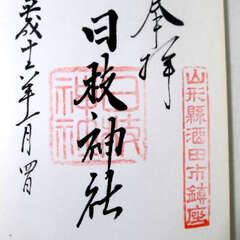 奉拝
山形縣酒田市鎮座
日枝神社
日枝神社
平成十二年一月四日